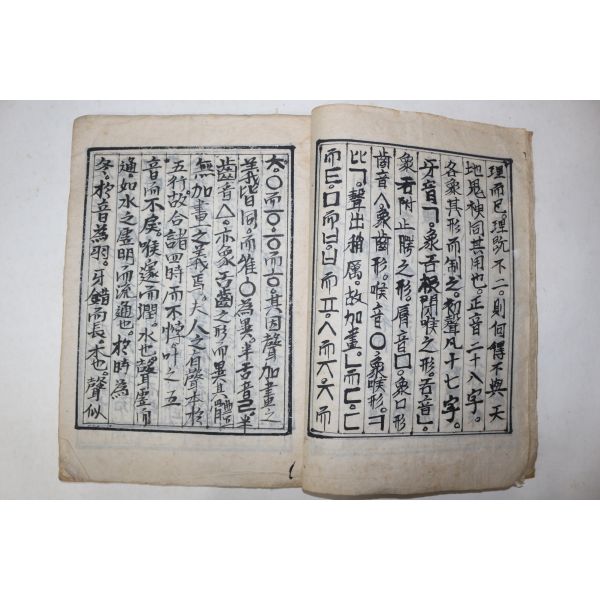 理而已。理旣不二。則何得不與天
地鬼神同其用也。正音二十八字。
各象其形而制之。初聲凡十七字。
牙音ㄱ。象舌根閉喉之形。舌音ㄴ。
象舌附上腭之形。脣音ㅁ。象口形
齒音ㅅ。象齒形。喉音ㅇ。象喉形。ㅋ
比ㄱ。聲出稍厲。故加畫。ㄴ而ㄷ。ㄷ
而ㅌ。ㅁ而ㅂ。ㅂ而ㅍ。ㅅ而ㅈ。ㅈ而
ㅊ。ㅇ而ㆆ。ㆆ而ㅎ。其因聲加畫之
義皆同。而唯ㆁ為異。半舌音ㄹ。半
齒音ㅿ。亦象舌齒之形而異其體。
無加畫之義焉。夫人之有聲本於
五行。故合諸四時而不悖。叶之五
音而不戾。喉邃而潤。水也。聲虛而
通。如水之虛明而流通也。於時為
冬。於音為羽。牙錯而長。木也。聲似